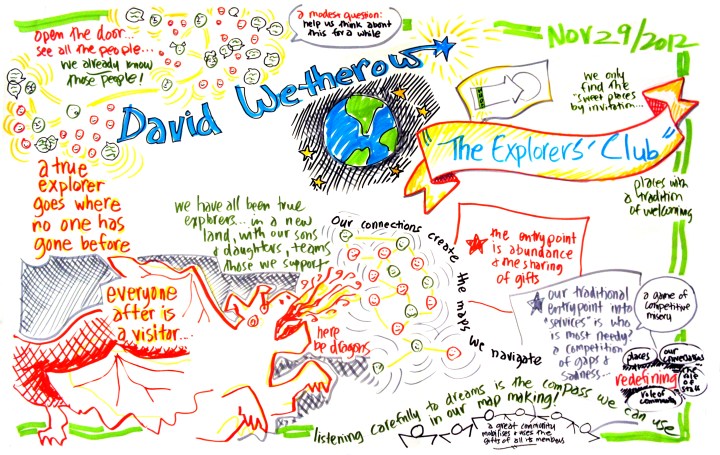 open the door...
see all the people...
we already know
those people!
a modest question:
help us think about
this for a while
Nov 29/2012
David Wetherow
we only
find the
sweet places
by invitation...
"The Explorers' Club"
places with
a tradition
of welcoming
a true
explorer
goes where
no one has
gone before
we have all been true
explorers... in a new
land, with our sons
& daughters, teams
those we support
Our connections create the maps we navigate
the entry point
is abundance
& the sharing
of gifts
everyone
after is
a visitor...
here
be dragons
our traditional
entry point into
"services" is who
is most needy?
a competition
of gaps &
sadness...
a game of
competitive
misery
places
our conversations
redefining
the role of staff
role of community
listening carefully to dreams is the compass we can use
in our map making!
a great community
mobilises & uses the
gifts of all its members